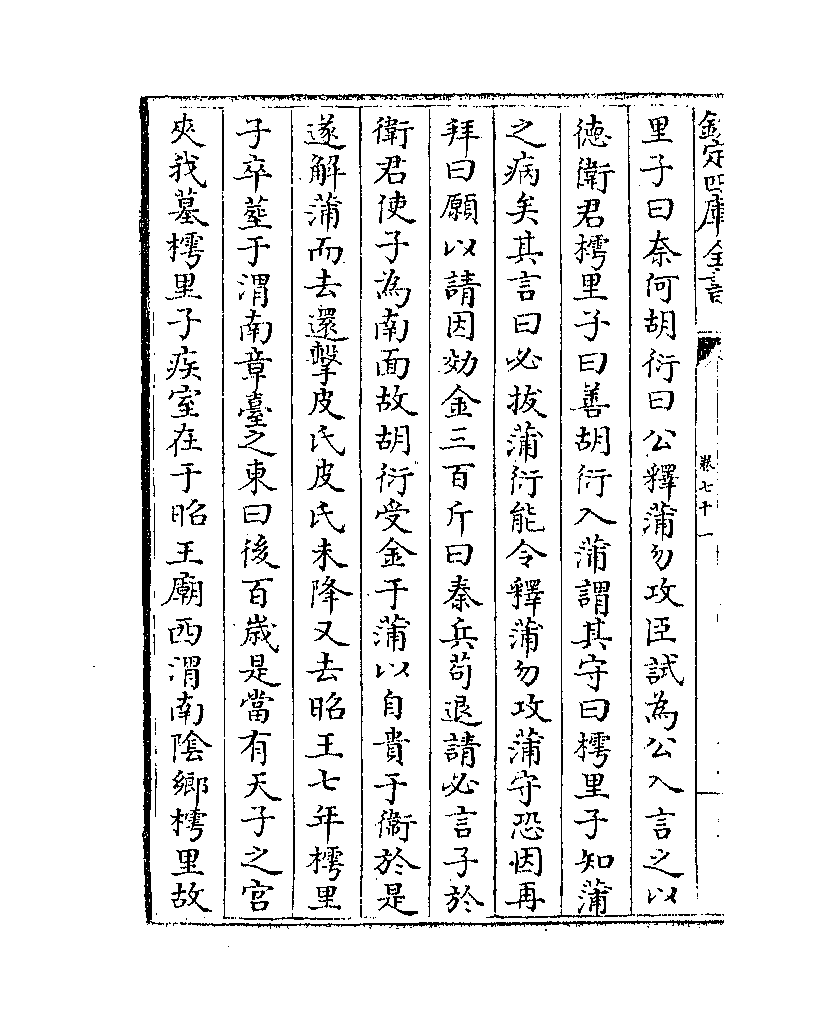 欽定四庫全書
卷七十一
里子曰奈何胡衍曰公釋蒲勿攻臣試為公入言之以
徳衛君樗里子曰善胡衍入蒲謂其守曰樗里子知蒲
之病矣其言曰必拔蒲衍能令釋蒲勿攻蒲守恐因再
拜曰願以請因効金三百斤曰秦兵苟退請必言子於
衛君使子為南面故胡衍受金于蒲以自貴于衛於是
遂解蒲而去還擊皮氏皮氏未降又去昭王七年樗里
子卒葬于渭南章臺之東曰後百嵗是當有天子之宫
夾我墓樗里子疾室在于昭王廟西渭南陰鄉樗里故